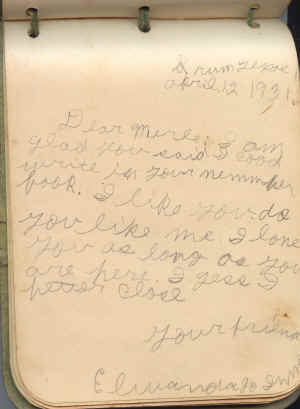 Drum Texas
April 12 1931
Dear Merle, I am
glad you said I cood
write in your nemmber
book. I like you do
you like me I love
you as long as you
are here. I gess I
better close
your friend